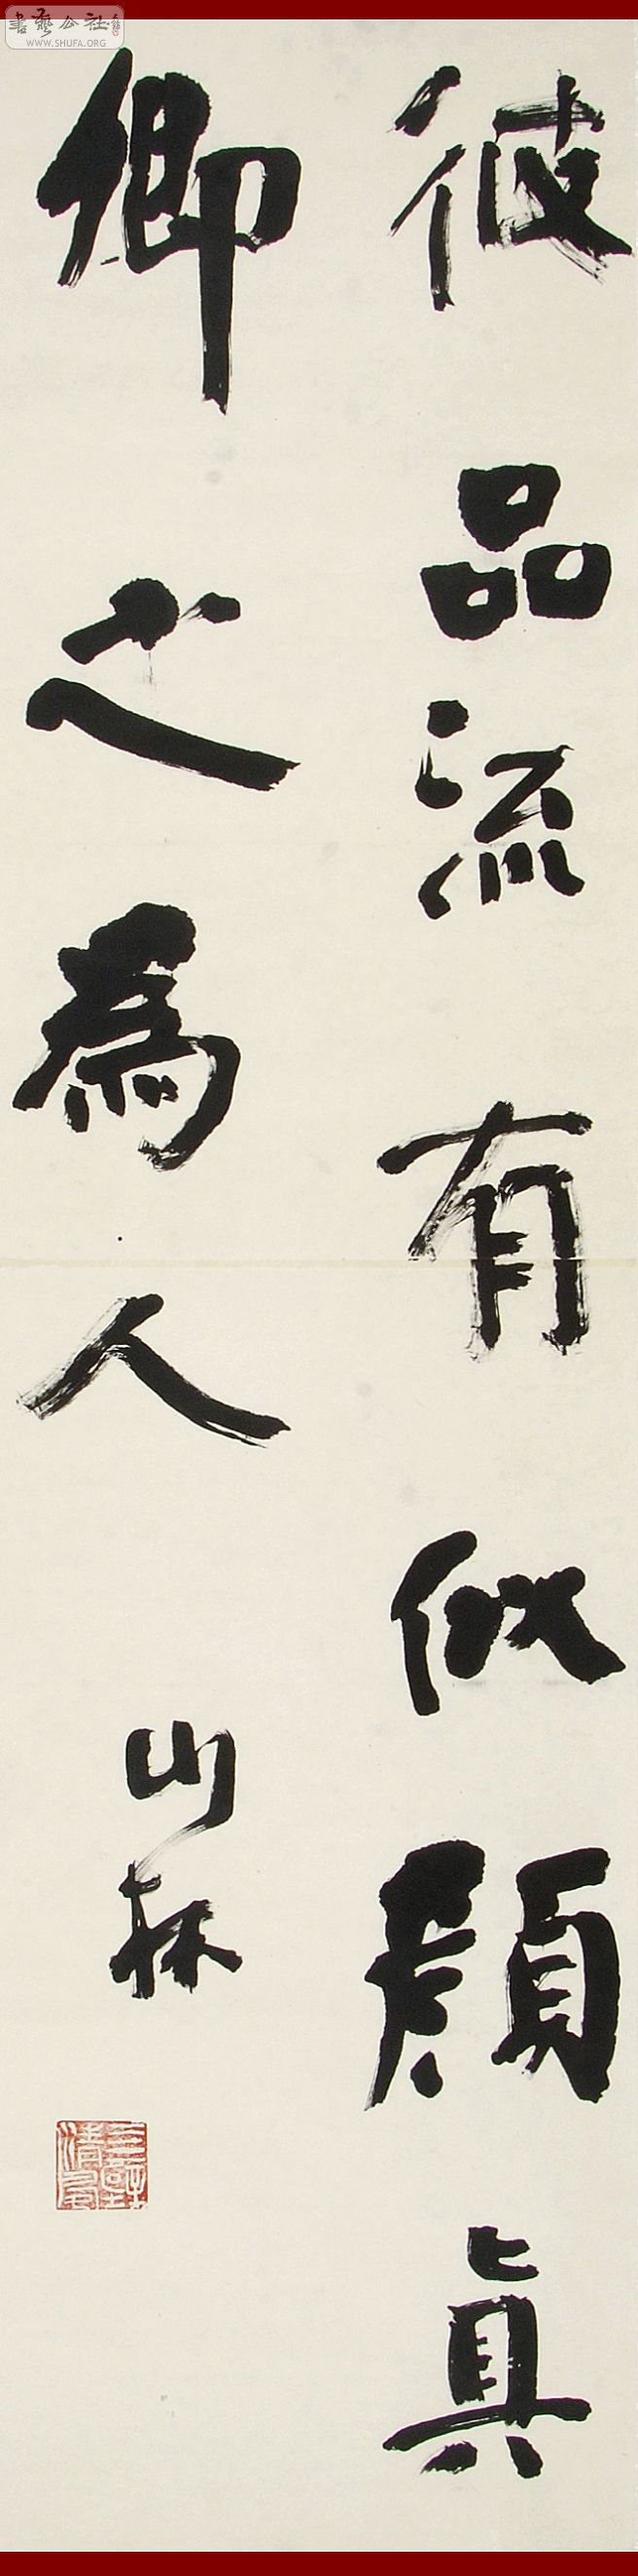 彼品流有似顏真
卿之為人
山林
書藝公社
WWW.SHUFA.ORG